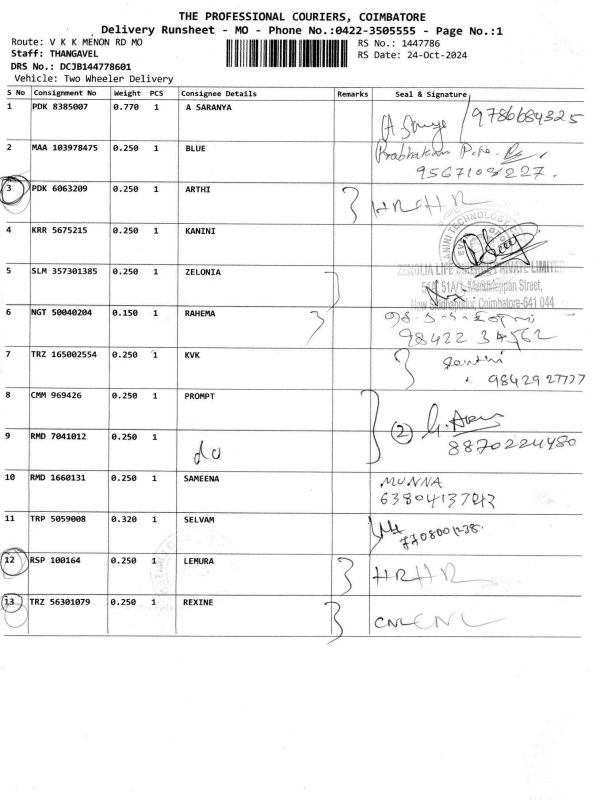 THE PROFESSIONAL COURIERS, COIMBATORE
Delivery Runsheet - MO - Phone No.:0422-3505555 - Page No.:1
Route: V K K MENON RD MO
RS No.: 1447786
Staff: THANGAVEL
RS Date: 24-Oct-2024
DRS No.: DCJB144778601
Vehicle: Two Wheeler Delivery
S No Consignment No Weight PCS Consignee Details Remarks Seal & Signature
1 PDK 8385007 0.770 1 A SARANYA
9786684325
2 MAA 103978475 0.250 1 BLUE
Prabhakaran
9567108227.
3 PDK 6063209 0.250 1 ARTHI HR HR
4 KRR 5675215 0.250 1 KANINI
KANINI TECHNOLOGY
5 SLM 357301385 0.250 1 ZELONIA
PRIVATE LIMITED
51A/1, Street,
Coimbatore-641 044
6 NGT 50040204 0.150 1 RAHEMA
98422 34562
7 TRZ 165002554 0.250 1 KVK
9842927777
8 CMM 969426 0.250 1 PROMPT
2
8870224480
9 RMD 7041012 0.250 1 do
10 RMD 1660131 0.250 1 SAMEENA MUNNA
11 TRP 5059008 0.320 1 SELVAM
12 RSP 100164 0.250 1 LEMURA HR HR
13 TRZ 56301079 0.250 1 REXINE CNL CNL